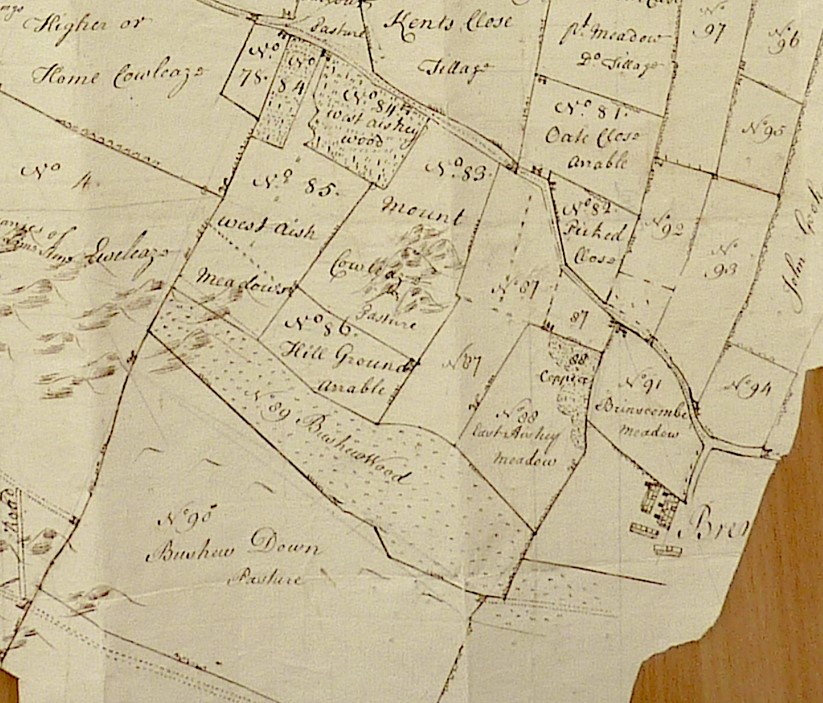 Higher or
Home Cowleaze
Pasture
Kents Close
Tillage
pt. Meadow
Do. Tillage
No. 97
No. 96
No. 78.
No. 84
No. 84
West Aishey
Wood
No. 81.
Oate Close
Arrable
No. 95
No. 83.
Mount
Cowleaze
Pasture
No. 4.
Eweleaze
No. 85.
West Aish
Meadows
No. 82.
Picked
Close
No. 92
No. 93
John
No. 87
87
No. 86.
Hill Ground
Arrable
No. 87
88
Coppice
No. 88
East Aishey
Meadow
No. 91
Brinscombe
Meadow
No. 94
No. 89 Bushew Wood
No. 90
Bushew Down
Pasture
Road
Bren